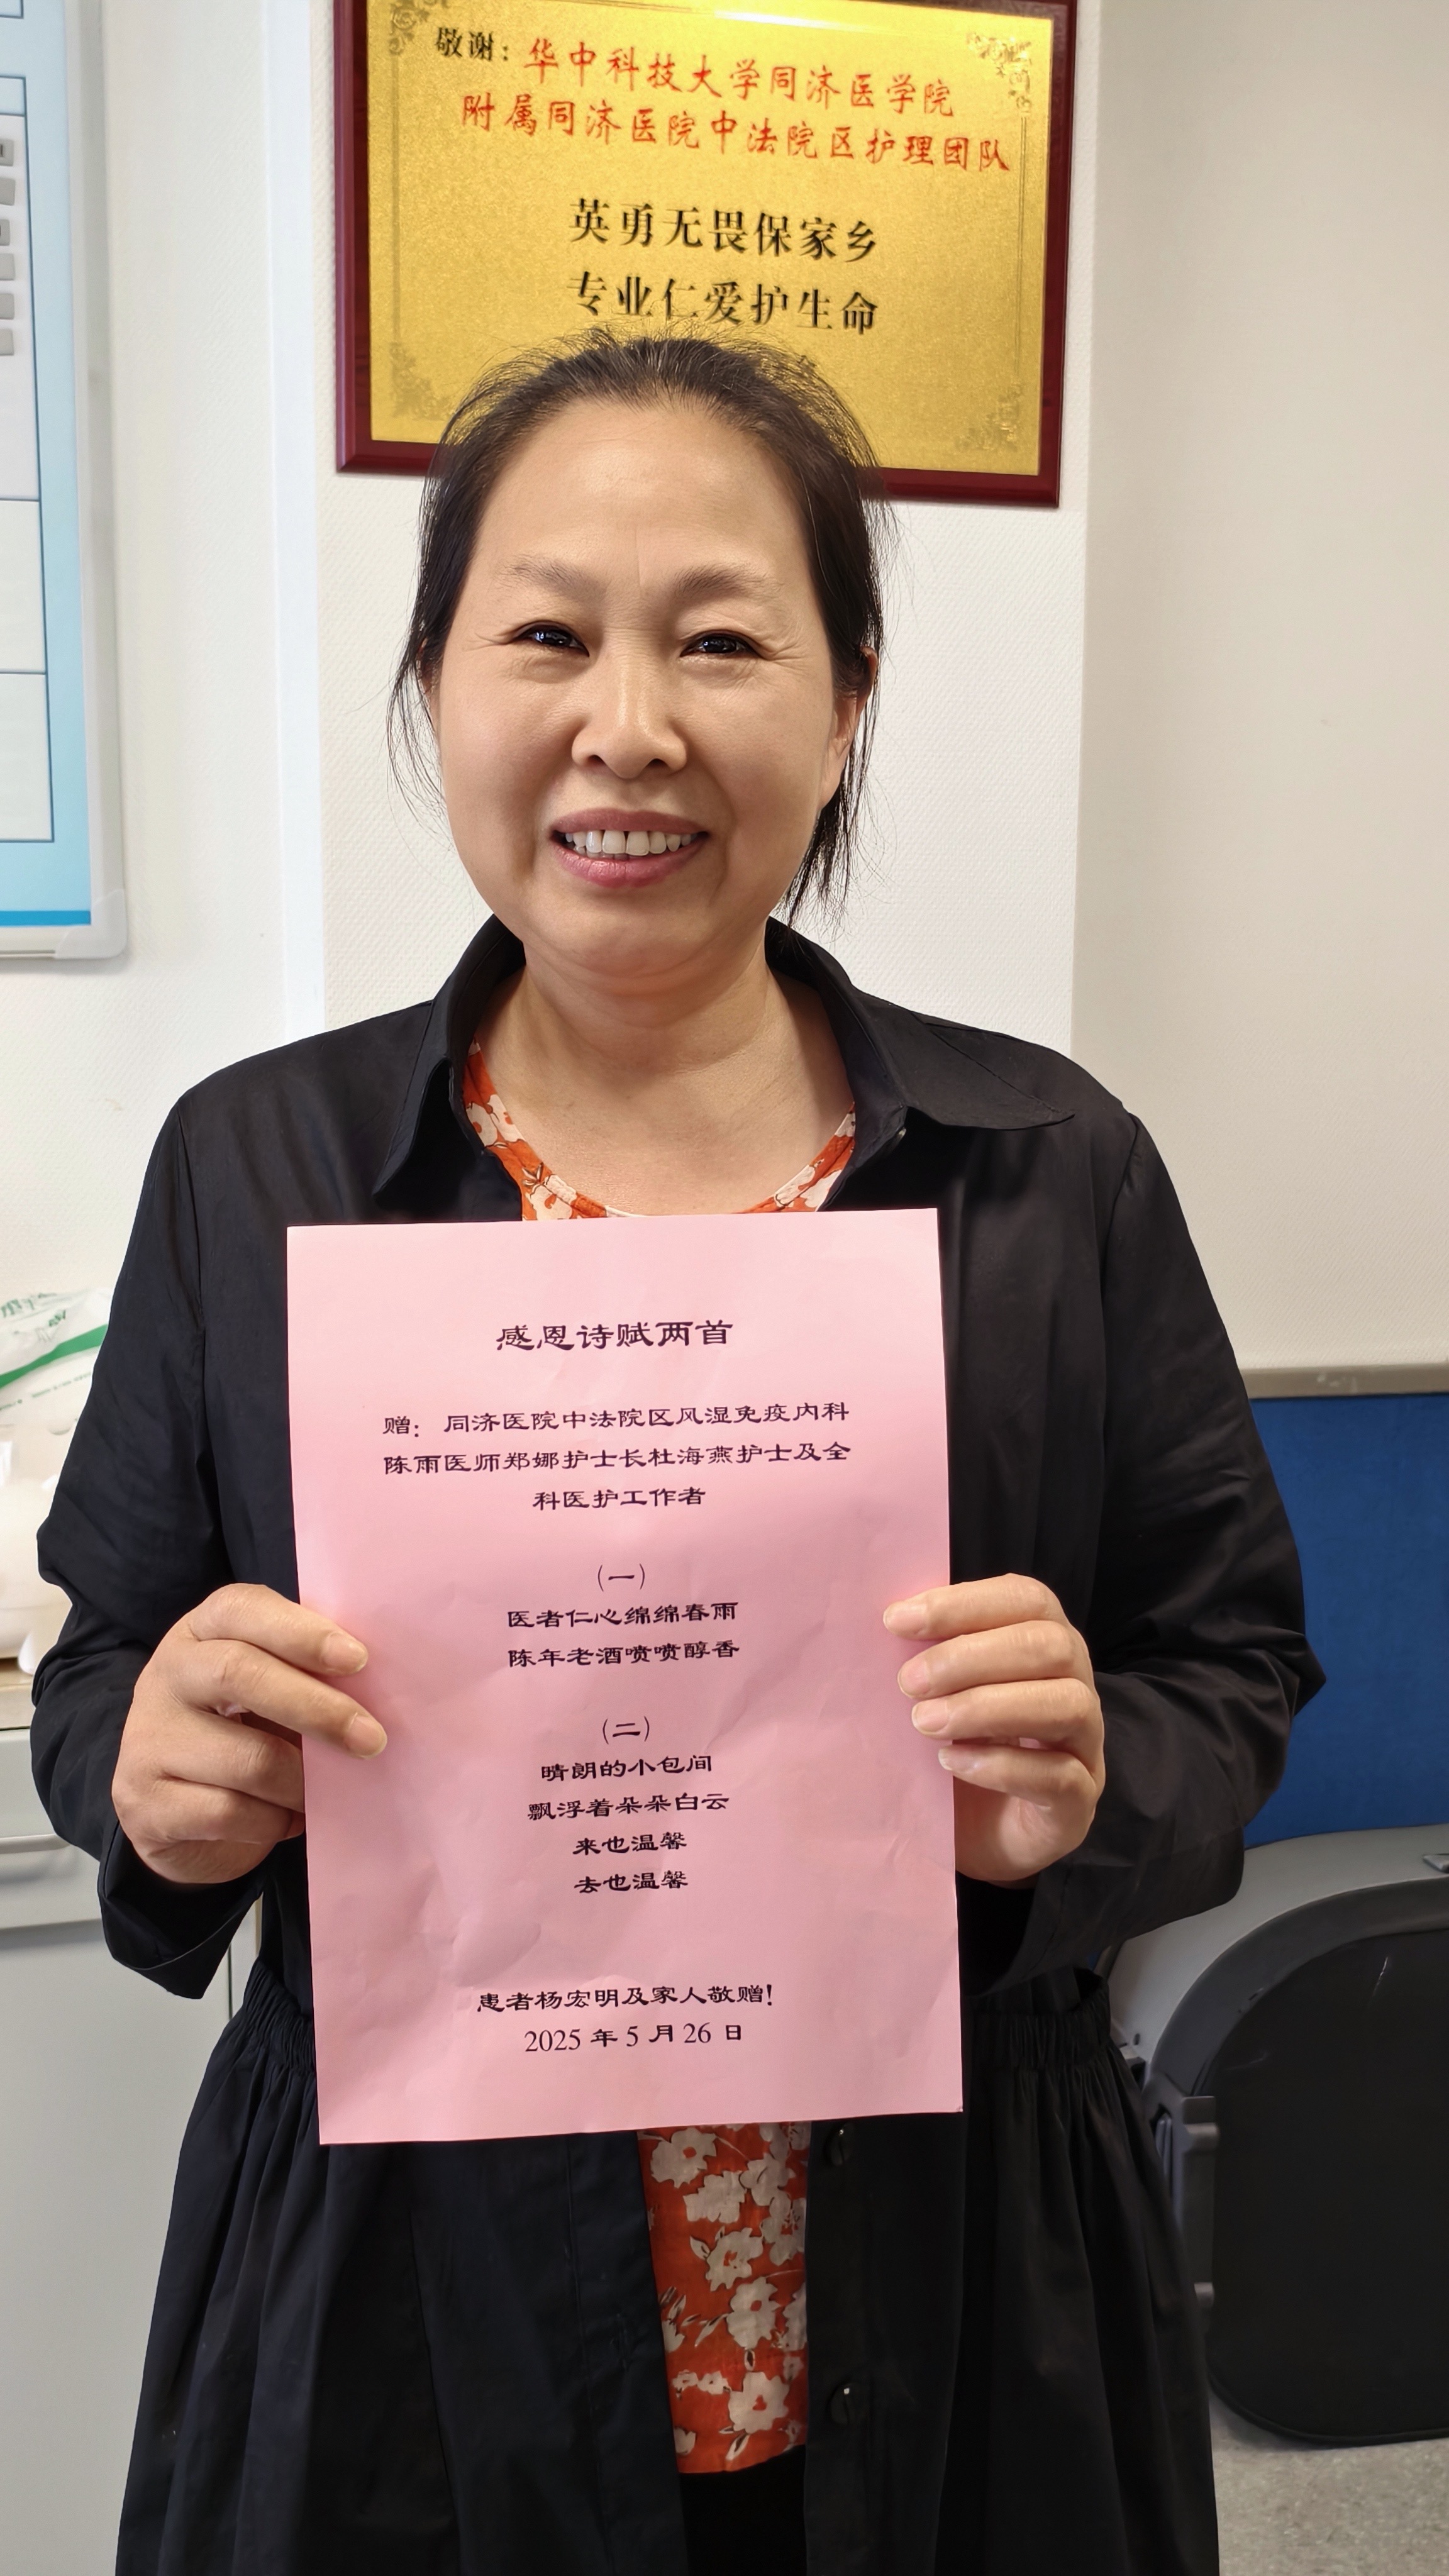 敬谢：华中科技大学同济医学院
附属同济医院中法院区护理团队
英勇无畏保家乡
专业仁爱护生命
感恩诗赋两首
赠：同济医院中法院区风湿免疫内科
陈雨医师郑娜护士长杜海燕护士及全
科医护工作者
（一）
医者仁心绵绵春雨
陈年老酒喷喷醇香
（二）
晴朗的小包间
飘浮着朵朵白云
来也温馨
去也温馨
患者杨宏明及家人敬赠！
2025年5月26日